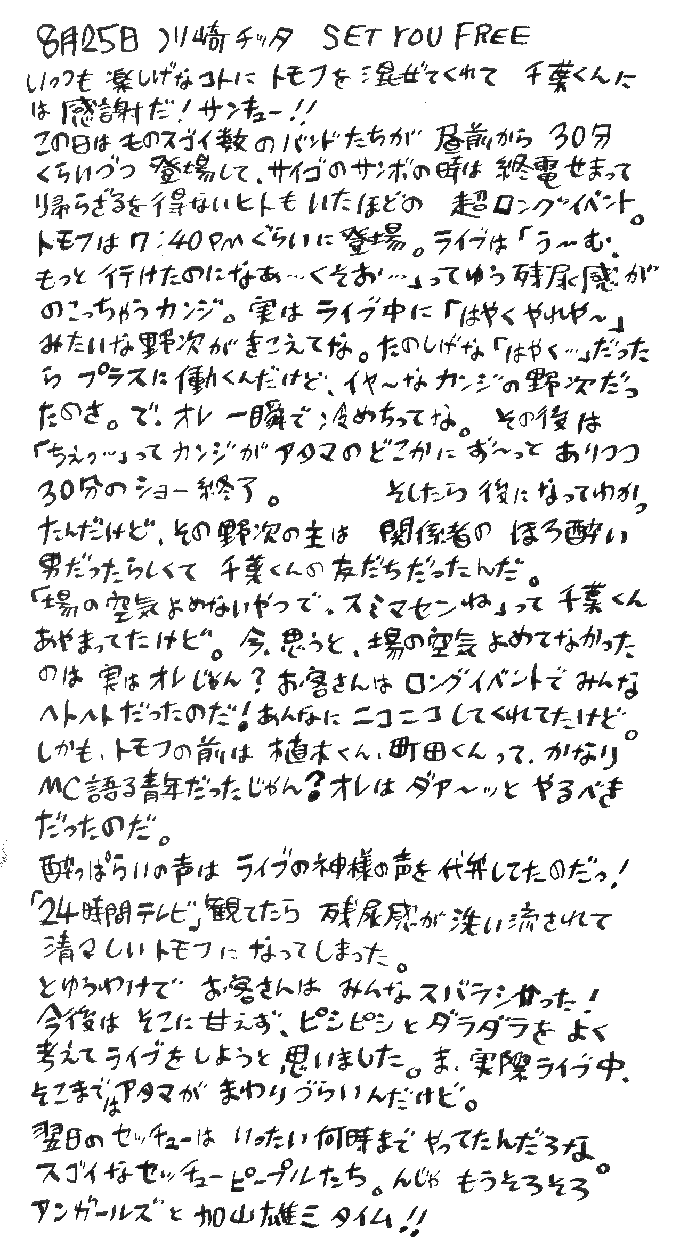 8月25日 川崎チッタ SET YOU FREE
いっつも 楽しげなコトに トモフを混ぜてくれて 千葉くんに
は感謝だ！サンキュー！！
この日は ものスゴイ数のバンドたちが 昼前から 30分
くらいづつ 登場して、サイゴのサンボの時は 終電せまって
帰らざるを得ないヒトもいたほどの 超ロングイベント。
トモフは 7:40PMぐらいに登場。ライブは「う〜む、
もっと 行けたのになあ…くそお…」ってゆう 残尿感が
のこっちゃうカンジ。実は ライブ中に「はやくやれや〜」
みたいな野次がきこえてな。たのしげな「はやく…」だった
ら プラスに働くんだけど、イヤ〜なカンジの野次だっ
たのさ。で、オレ 一瞬で冷めちってな。その後は
「ちえっ…」ってカンジがアタマのどこかにず〜っとありつつ
30分のショー終了。 そしたら 後になってわかっ
たんだけど、その野次の主は 関係者の ほろ酔い
男だったらしくて 千葉くんの友だちだったんだ。
「場の空気よめないやつで、スミマセンね」って 千葉くん
あやまってたけど。今、思うと、場の空気 よめてなかった
のは 実は オレじゃん？お客さんは ロングイベントでみんな
ヘトヘトだったのだ！あんなに ニコニコしてくれてたけど。
しかも、トモフの前は 植木くん、町田くんって、かなり
MC語る青年だったじゃん？オレは ダァ〜ッと やるべき
だったのだ。
酔っぱらいの声は ライブの神様の声を代弁してたのだっ！
「24時間テレビ」観てたら 残尿感が洗い流されて
清々しいトモフに なってしまった。
とゆうわけで お客さんは みんなスバラシかった！
今後は そこに甘えず、ピシピシとダラダラを よく
考えてライブをしようと 思いました。ま、実際ライブ中、
そこまではアタマが まわりづらいんだけど。
翌日のセッチューは いったい何時まで やってたんだろな。
スゴイなセッチューピープルたち。んじゃ もうそろそろ
アンガールズと 加山雄三タイム！！